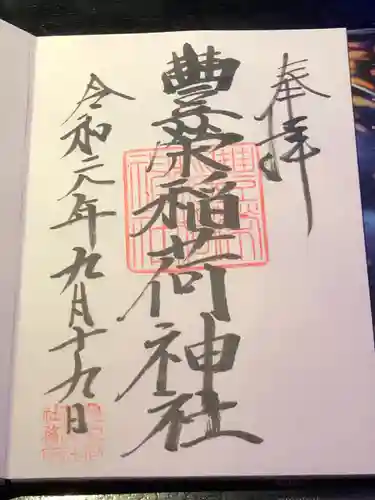 奉拝
豊栄稲荷神社
令和元年九月十九日